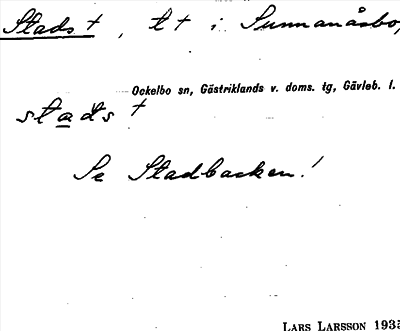 Stads †, t† i Sunnanåsbo,
Ockelbo sn, Gästriklands v. doms. tg, Gävleb. l.
stads †
Se Stadbacken!
LARS LARSSON 1935